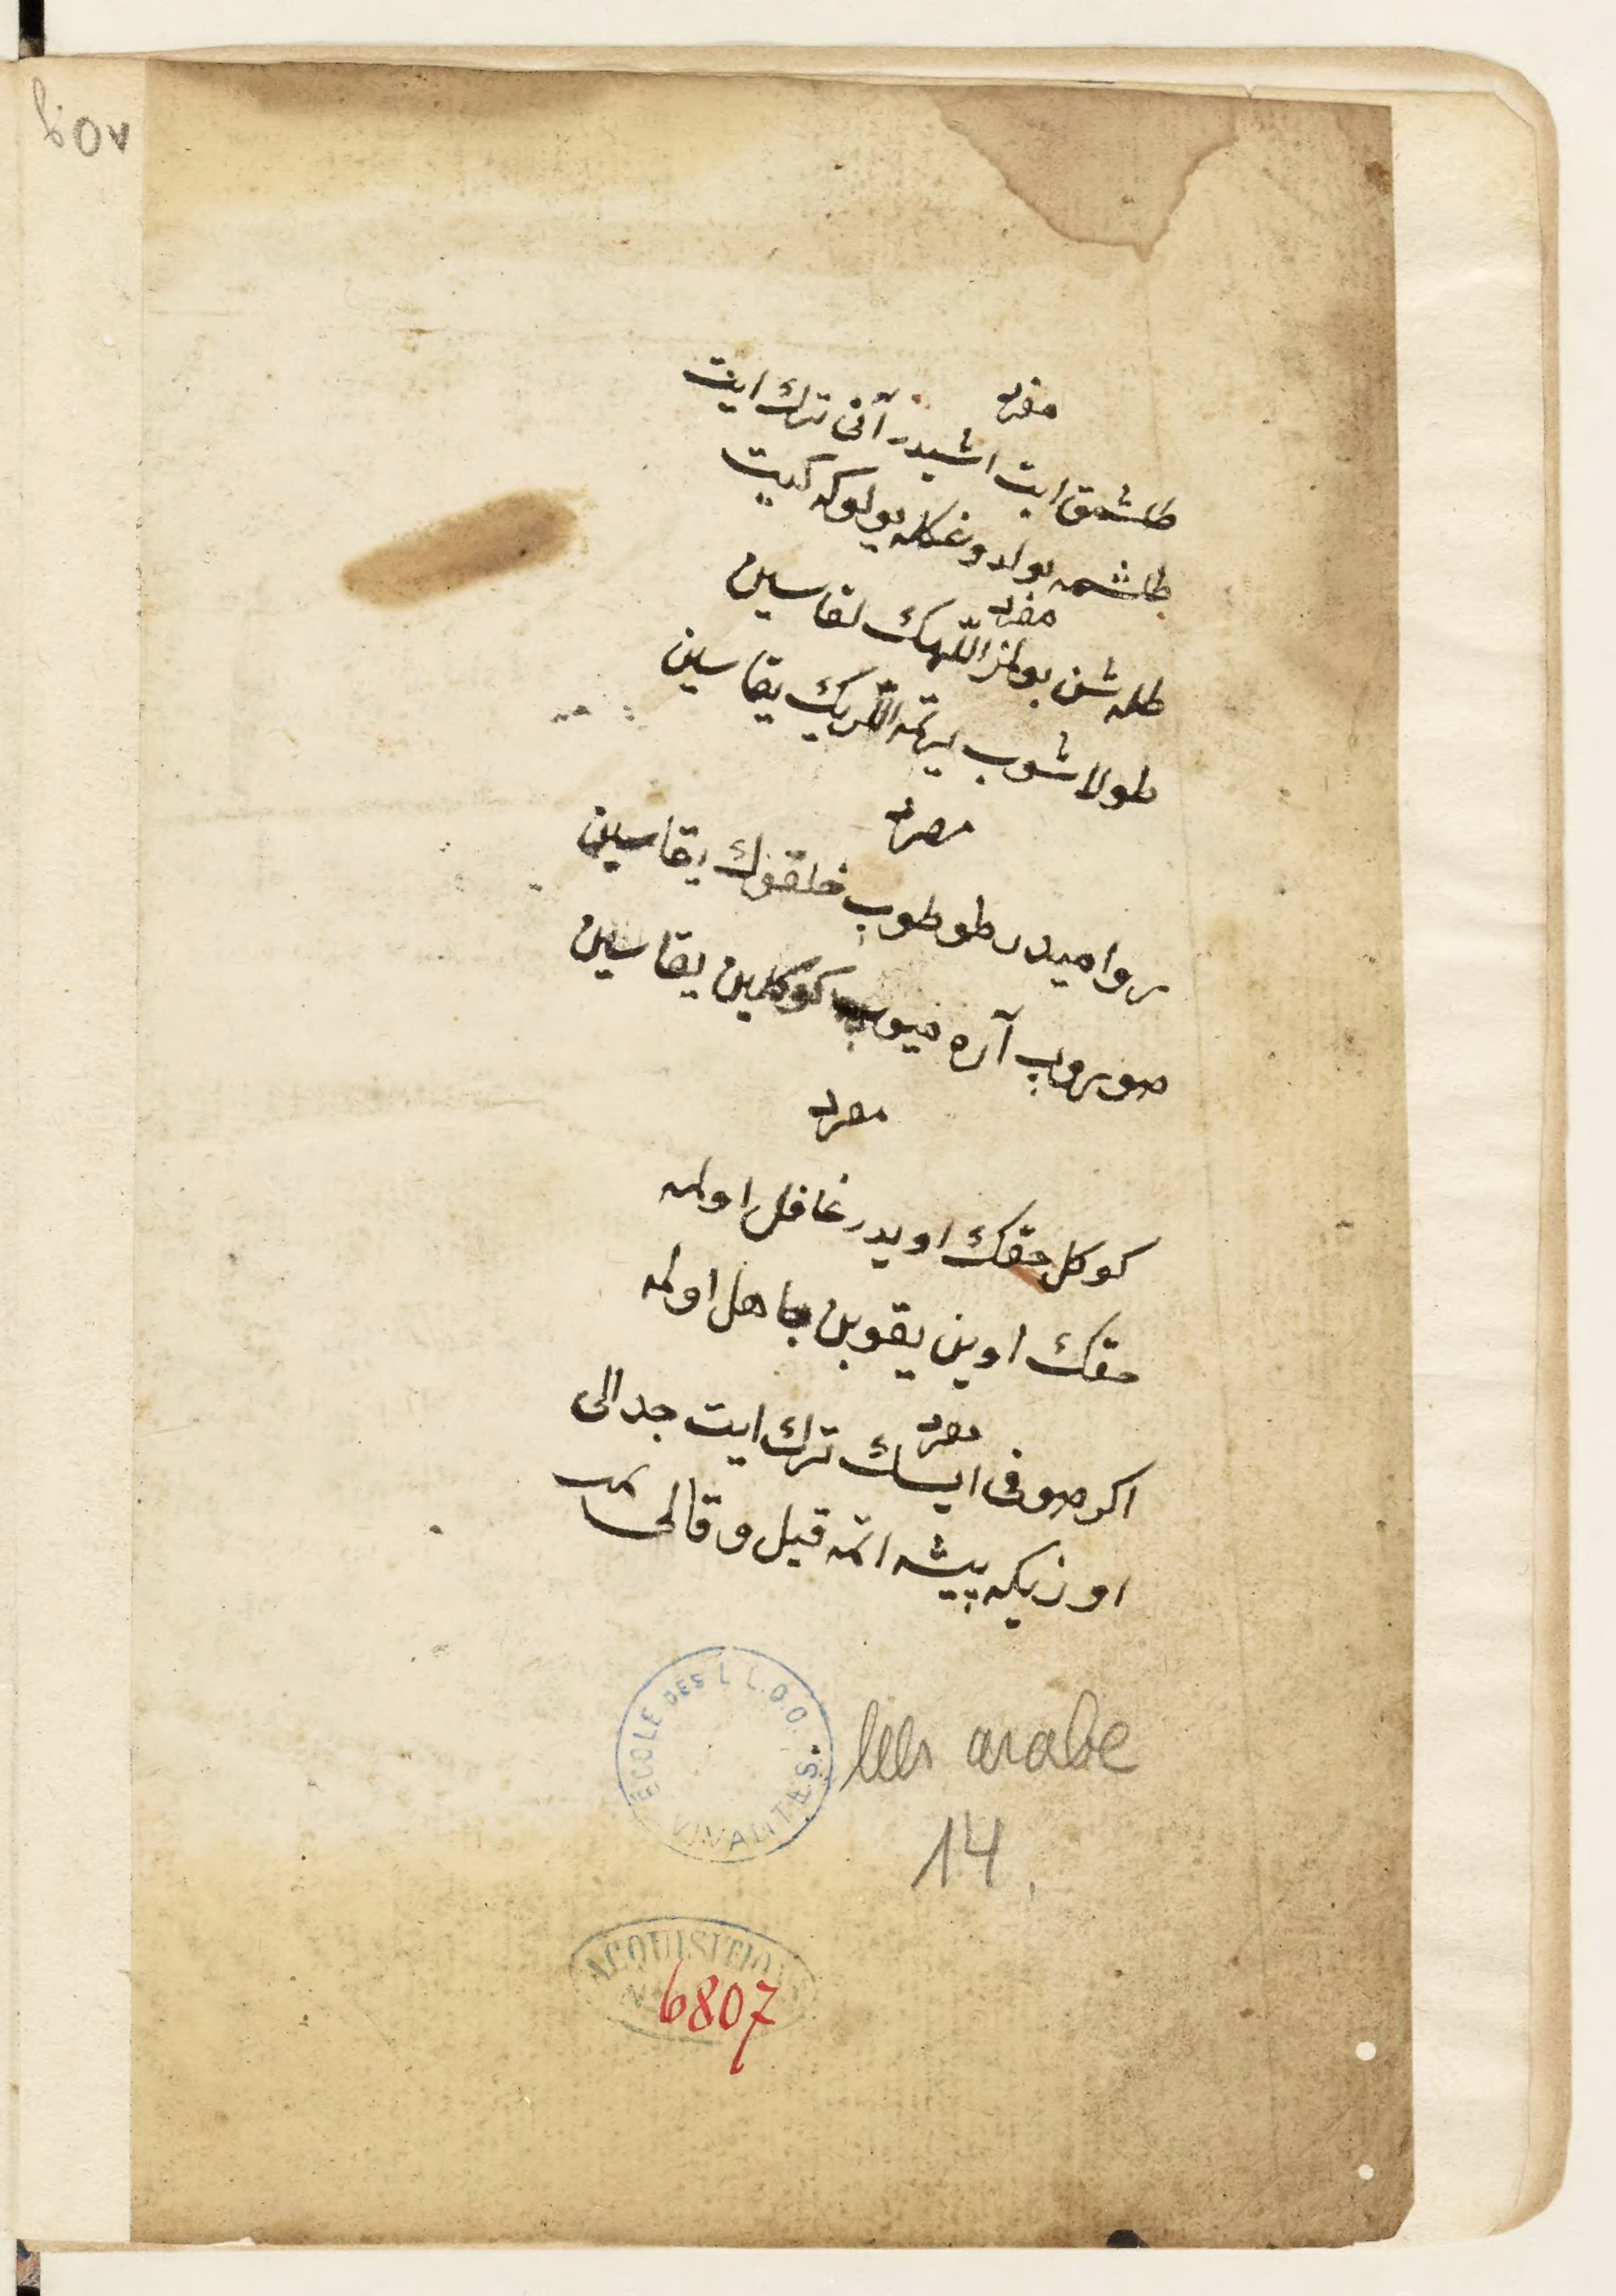 مفرد
طاشمق ايت اشيدر آنى ترك ايت
طاشمه بولدوغكله يولوكه كيت
مفرد
طله شن بولمز اللّهك لقاسين
طولاشوب يرتمه الّرك يقاسين
مفرد
روا ميدر طوطوب خلقوك يقاسين
صوروب آره ميوب كوكلين يقاسين
مفرد
كوكل حقك اويدر غافل اولمه
حقك اوين يقوبن جاهل اولمه
مفرد
اكر صوفى ايسك ترك ايت جدالى
اوزيكه پيشه اتمه قيل و قالى
ECOLE DES L L.O.O. VIVANTES.
Ms arabe
14.
ACQUISITIONS
N
6807